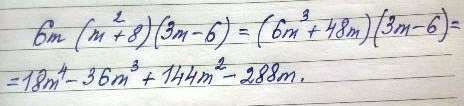 6m (m²+8)(3m-6) = (6m³+48m)(3m-6)=
=18m⁴-36m³+144m²-288m.